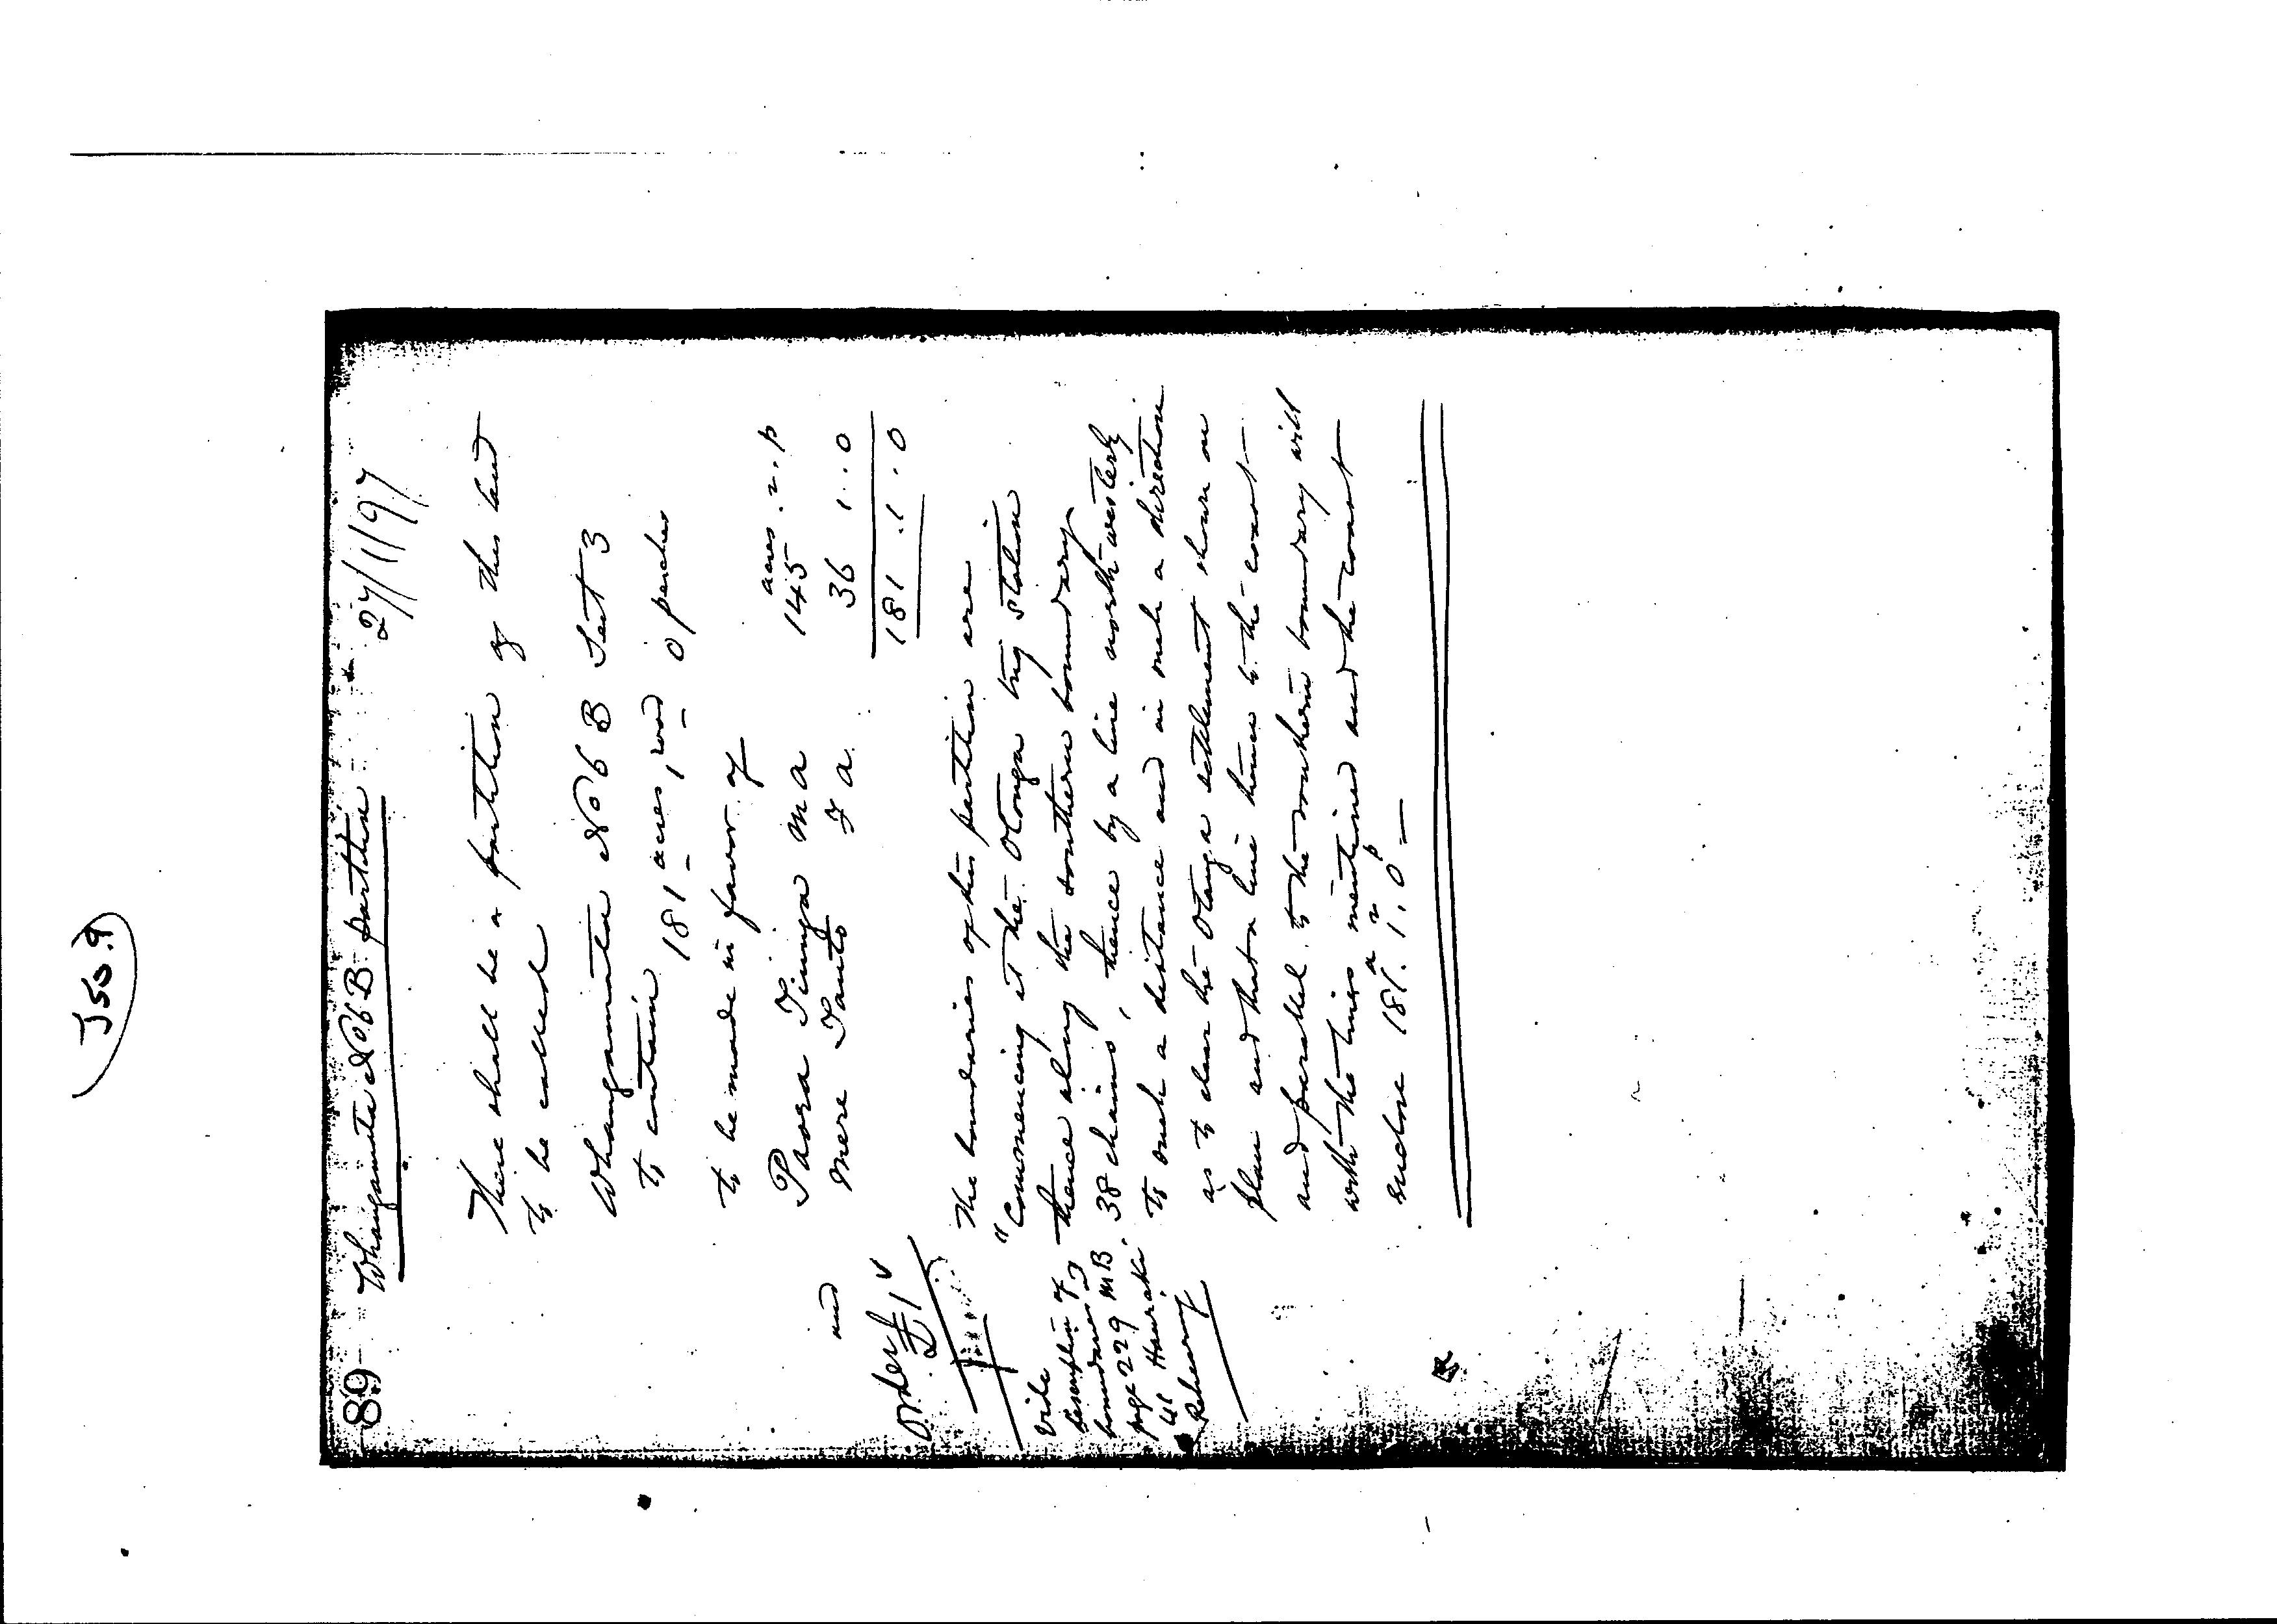 J55.9
89 Whangamata No 6 B partition 27/1/97
There shall be a partition of this land
to be called
Whangamata No 6 B Sect 3
to contain
181 acres 1 rood 0 perches
to be made in favor of
acres . r . p
Paora Tiunga m a 145
and Mere Tauto F a. 36 1 . . 0
181 . 1 . . 0
Order
£1
The boundaries of this partition are
"Commencing at the Otonga trig station
thence along the southern boundary
38 chains, thence by a line north-westerly
to such a distance and in such a direction
as to clear the Otonga settlement shown on
plan and that a line thence to the coast
and parallel to the southern boundary will
with the lines mentioned and the coast
enclose 181a. 1r. 0p
Vide
description of
boundaries
page 229 MB
41 Hauraki.
Rehearing